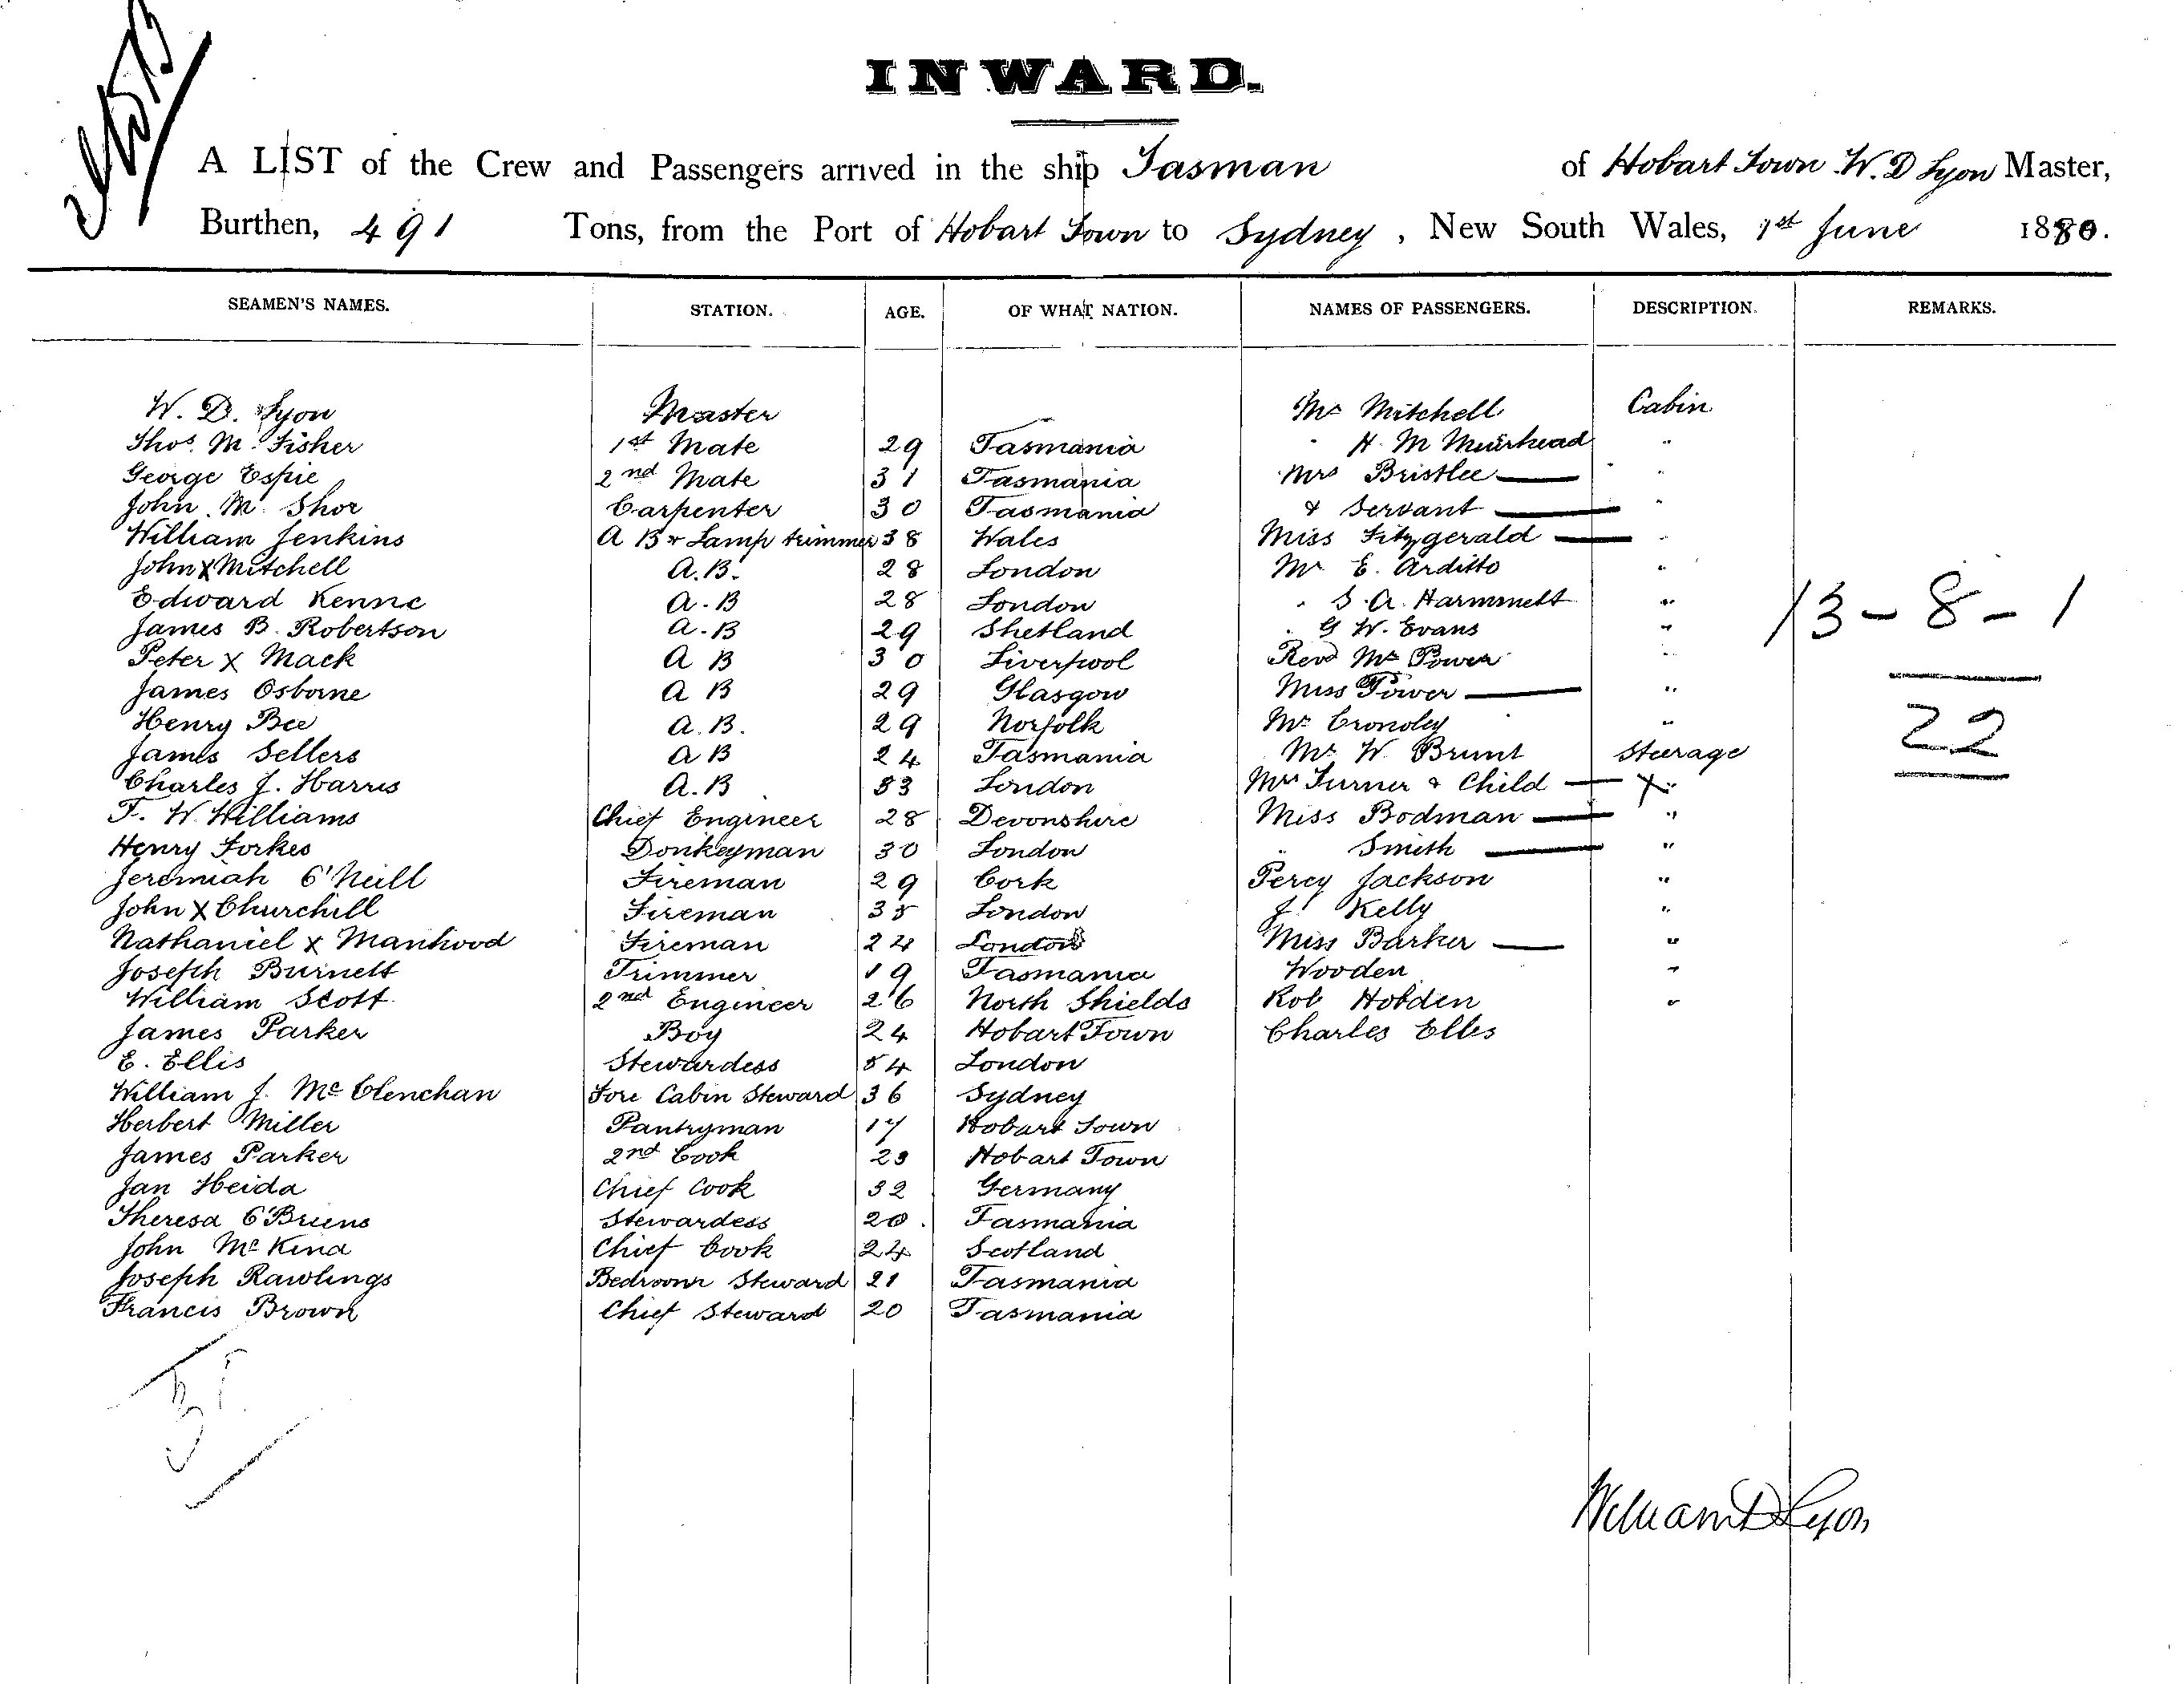 INWARD.
A LIST of the Crew and Passengers arrived in the ship Tasman of Hobart Town W. D Lyon Master,
Burthen, 491 Tons, from the Port of Hobart Town to Sydney, New South Wales, 1st June 1880.
SEAMEN'S NAMES. STATION. AGE. OF WHAT NATION. NAMES OF PASSENGERS. DESCRIPTION. REMARKS.
W. D. Lyon Master Mr Mitchell Cabin
Thos. M. Fisher 1st Mate 29 Tasmania " H. M Muirhead "
George Espie 2nd Mate 31 Tasmania Mrs Bristlee "
John M. Shor Carpenter 30 Tasmania & Servant "
William Jenkins A B & Lamp trimmer 38 Wales Miss Fitzgerald "
John X Mitchell A.B. 28 London Mr E. Arditto "
Edward Kenne A.B 28 London " S. A. Harmmett "
James B. Robertson A.B 29 Shetland " G W. Evans "
Peter X Mack A B 30 Liverpool Revd Mr Power "
James Osborne A B 29 Glasgow Miss Power "
Henry Bee A.B. 29 Norfolk Mr "
James Sellers A B 24 Tasmania Mr W. Brunt Steerage
Charles J. Harris A.B 53 London Mrs Turner & Child "
T. W. Williams Chief Engineer 28 Devonshire Miss Bodman "
Henry Forkes Donkeyman 30 London " Smith "
Jeremiah O'Neill Fireman 29 Cork Percy Jackson "
John X Churchill Fireman London J. Kelly "
Nathaniel X Manhood Fireman 24 London Miss Barker "
Joseph Burnett Trimmer 19 Tasmania Wooden "
William Scott 2nd Engineer 26 North Shields Rob Hobden "
James Parker Boy 24 Hobart Town Charles Elles
E. Ellis Stewardess 54 London
William J. McClenchan Fore Cabin Steward 36 Sydney
Herbert Miller Pantryman 17 Hobart Town
James Parker 2nd Cook 23 Hobart Town
Jan Heida Chief Cook 32 Germany
Theresa O'Briens Stewardess 20. Tasmania
John McKind Chief Cook 24 Scotland
Joseph Rawlings Bedroom Steward 21 Tasmania
Francis Brown Chief Steward 20 Tasmania
13-8-1
22
William D Lyon